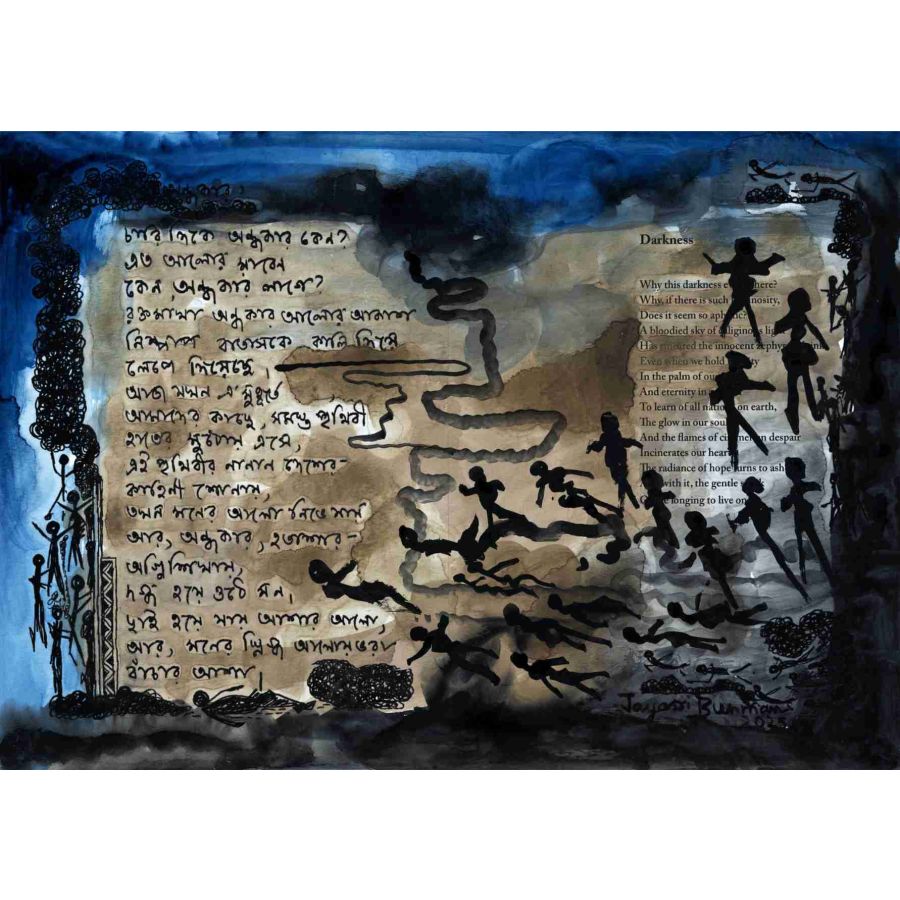 অন্ধকার,
চারি দিকে অন্ধকার কেন?
এত আলোর মাঝে
কেন, অন্ধকার লাগে?
রক্তমাখা অন্ধকার আলোর আকাশ
নিষ্পাপ বাতাসকে কালি দিয়ে
লেপে দিয়েছে,
আজ যখন এ মুহূর্তে
আমাদের কাছে, সমস্ত পৃথিবী
হাতের মুঠোয় এসে,
এই পৃথিবীর নানান দেশের-
কাহিনী শোনায়,
তখন মনের আলো নিভে যায়
আর, অন্ধকার, হতাশার-
অগ্নিশিখায়,
দগ্ধ হয়ে ওঠে মন,
ছাই হয়ে যায় আশার আলো,
আর, মনের স্নিগ্ধ আলোয়ভরা
বাঁচার আশা।
Darkness
Why this darkness
Why, if there is such
Does it seem so
A bloodied sky of
the innocent
Even when we hold
In the palm of
And eternity in
To learn of all on earth,
The glow in our
And the flames of despair
Incinerates our
The radiance of hope turns to ash
with it, the gentle
longing to live on
Jayasri Burman
2025